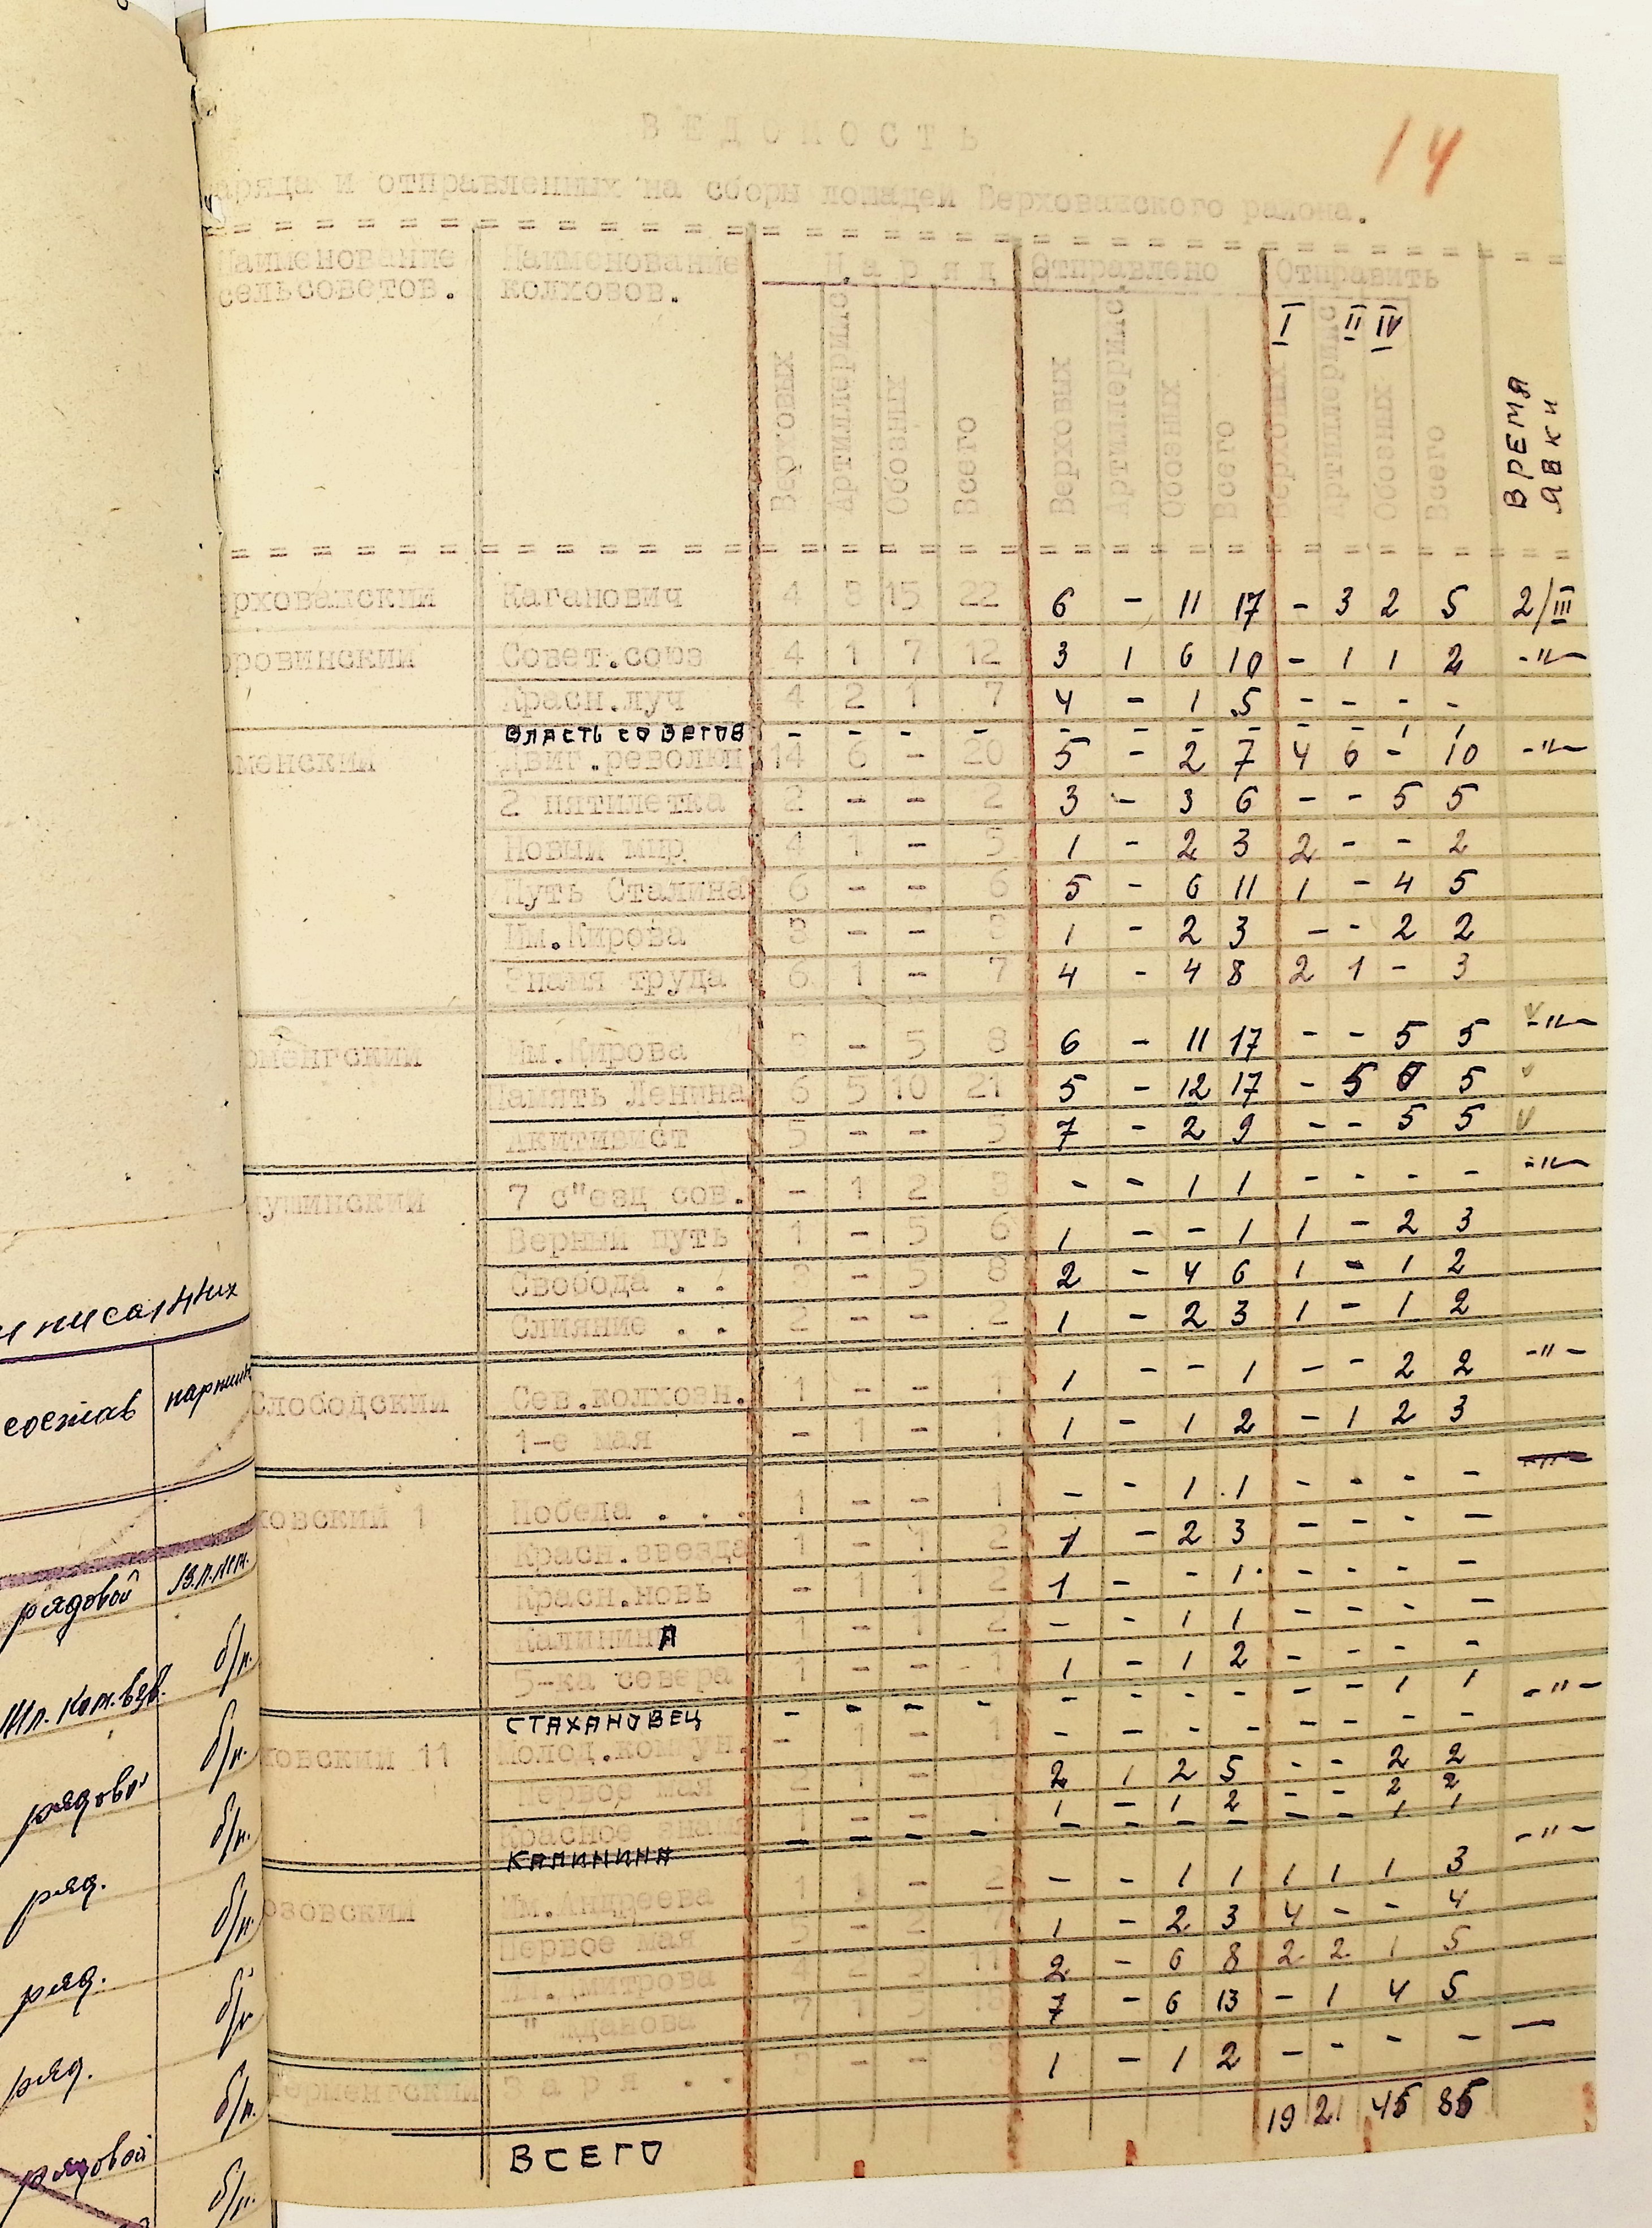 14
ВЕДОМОСТЬ
аряда и отправленных на сборы лошадей Верховажского района.
Наименование сельсоветов. Наименование колхозов. Наряд Отправлено Отправить ВРЕМЯ ЯВКИ
I II IV
Верховых Артиллерийс Обозных Всего Верховых Артиллерийс Обозных Всего Верховых Артиллерийс Обозных Всего
ерховажский Каганович 4 3 15 22 6 - 11 17 - 3 2 5 2/III
оровинский Совет.союз 4 1 7 12 3 1 6 10 - 1 1 2 -"-
Красн.луч 4 2 1 7 4 - 1 5 - - - -
ВЛАСТЬ СОВЕТОВ - - - - - - - - - - 1 1
менский Двиг.револю 14 6 - 20 5 - 2 7 4 6 - 10 -"-
2 пятилетка 2 - - 2 3 - 3 6 - - 5 5
Новый мир 4 1 - 5 1 - 2 3 2 - - 2
Путь Сталина 6 - - 6 5 - 6 11 1 - 4 5
Им.Кирова 3 - - 3 1 - 2 3 - - 2 2
Знамя труда 6 1 - 7 4 - 4 8 2 1 - 3
оменгский Им.Кирова - 5 8 6 - 11 17 - - 5 5 -"-
Память Ленина 6 5 10 21 5 - 12 17 - 5 5
Акитивист 5 - - 5 7 - 2 9 - - 5 5
ушинский 7 с"езд сов. - 1 2 3 - - 1 1 - - - - -"-
Верный путь 1 - 5 6 1 - - 1 1 - 2 3
Свобода . . 3 - 5 8 2 - 4 6 1 - 1 2
Слияние . . 2 - - 2 1 - 2 3 1 - 1 2
Слободский Сев.колхозн. 1 - - 1 1 - - 1 - - 2 2 -"-
1-е мая - 1 - 1 1 - 1 2 - 1 2 3
ховский 1 Победа . . . 1 - - 1 - - 1 1 - - - -
Красн.звезда 1 - 1 2 1 - 2 3 - - - -
Красн.новь - 1 1 2 1 - - 1 - - - -
Калинина 1 - 1 2 - - 1 1 - - - -
5-ка севера 1 - - 1 1 - 1 2 - - - -
СТАХАНОВЕЦ - - - - - - - - - - 1 1 -"-
ховский 11 Молод.комун. - 1 - 1 - - - - - - - -
Первое мая 2 1 - 2 1 2 5 - - 2 2
Красное знам 1 - - 1 1 - 1 2 - - 2 2
КАЛИНИНА - - - - - - - - - - 1 1
озовский Им.Андреева 1 1 - 2 - - 1 1 1 1 1 3 -"-
Первое мая 5 - 2 7 1 - 2 3 4 - - 4
Дмитрова 4 2 11 2 - 6 8 2 2 1 5
" Жданова 7 1 5 7 - 6 13 - 1 4 5
Терменгский Заря . . - - 1 - 1 2 - - - - -
ВСЕГО 19 21 45 85
состав
рядовой
б/п.
Мл. Ком.взв.
б/п.
рядово
б/п.
ряд.
б/п.
ряд.
б/п
ряд.
б/п.
рядовой
б/п.